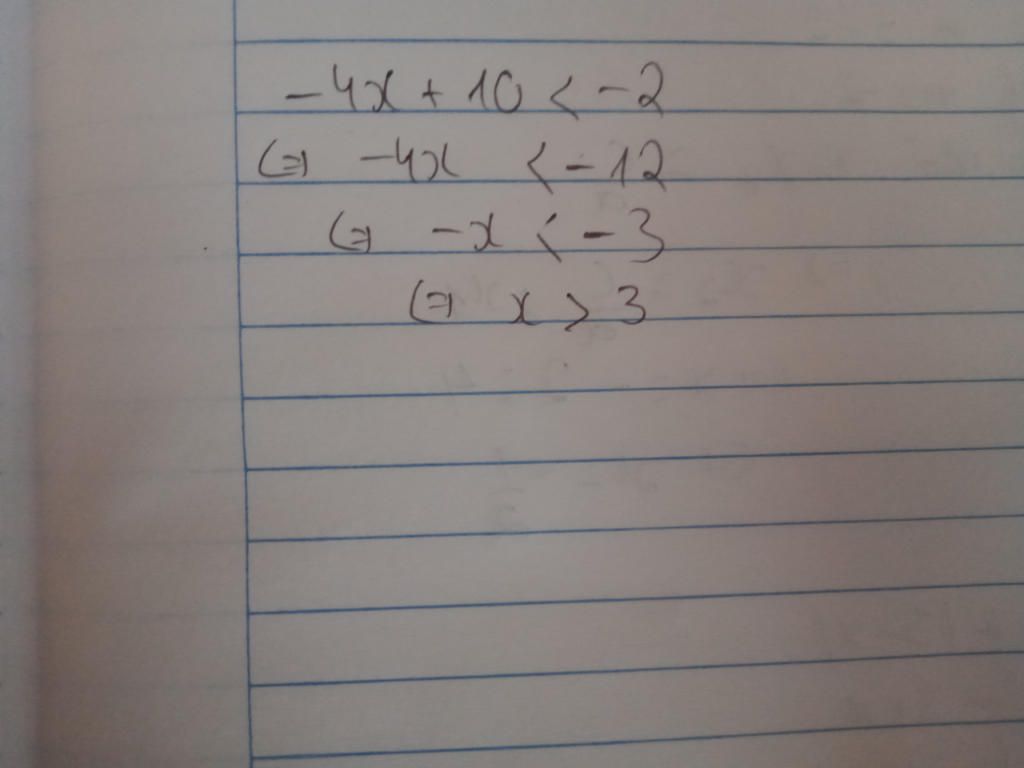 -4x + 10 < -2
⇔ -4x < -12
⇔ -x < -3
⇔ x > 3